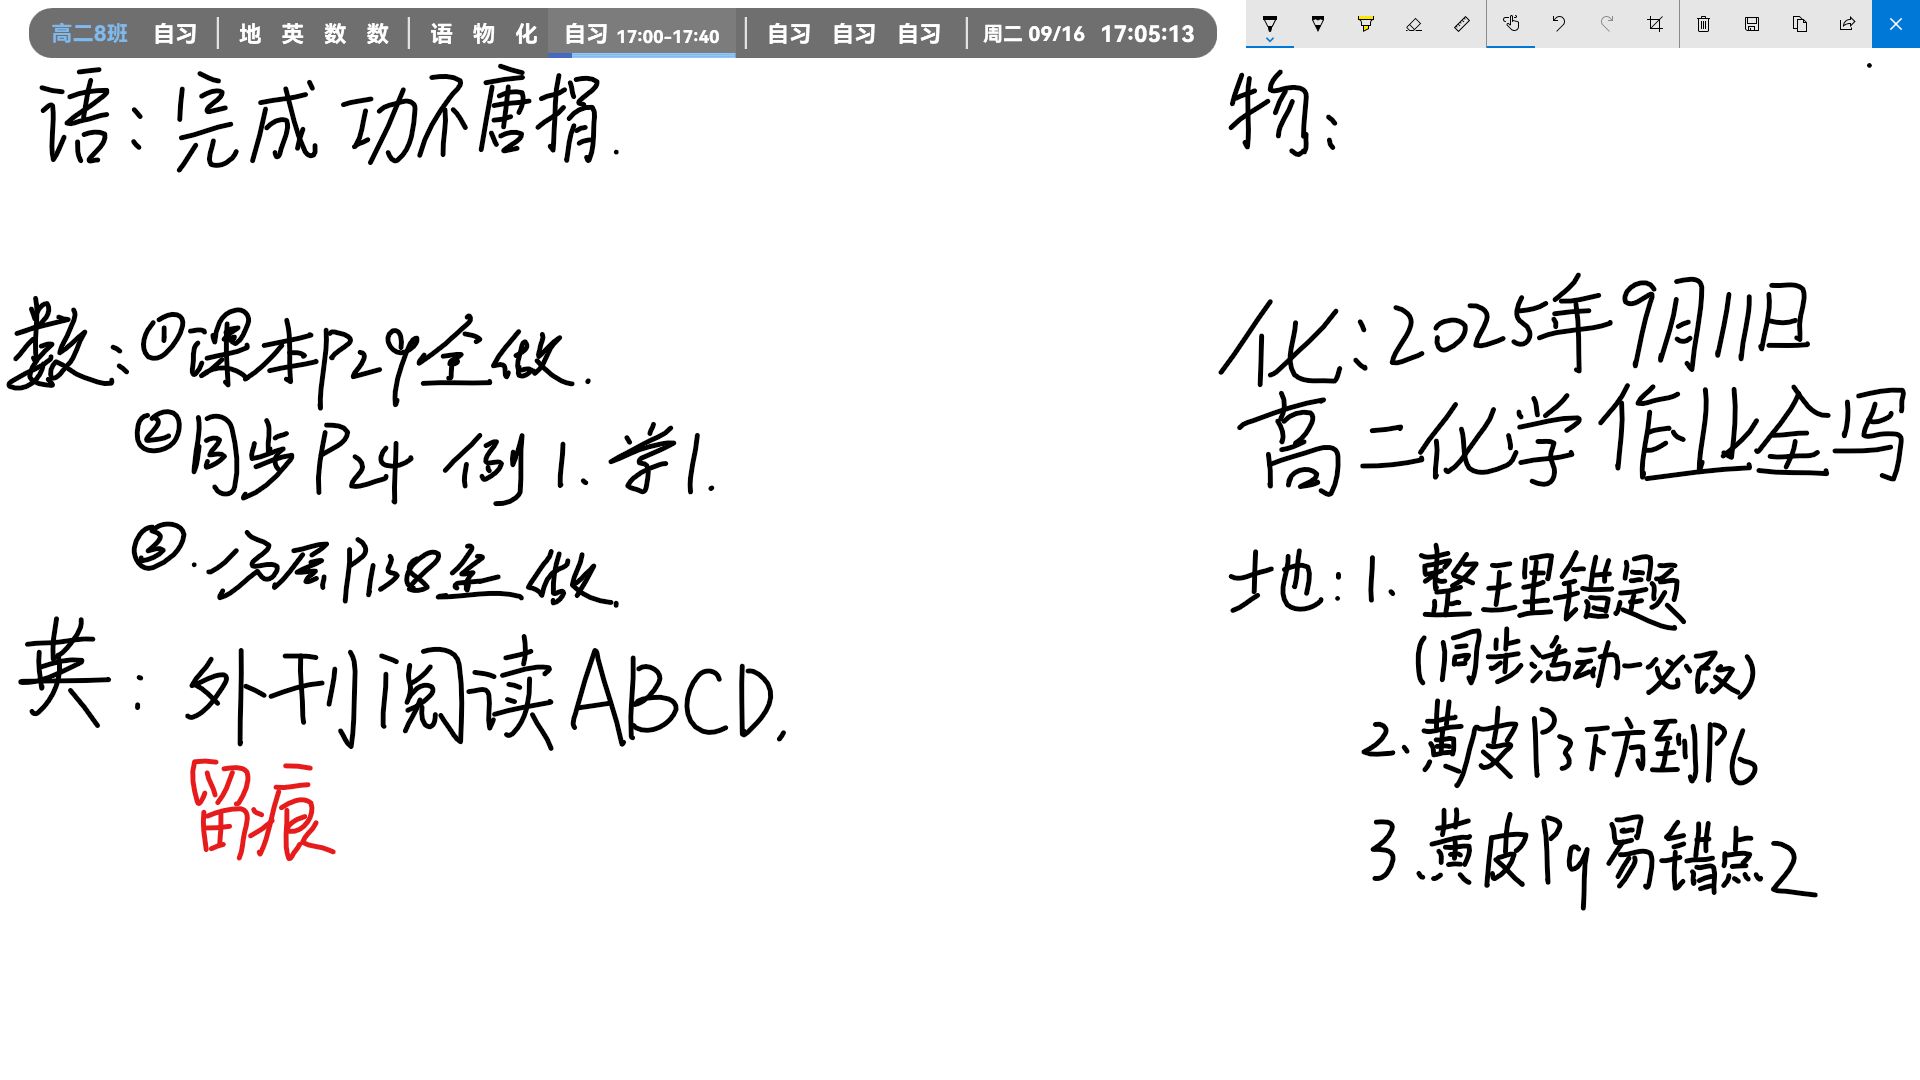 高二8班 自习 | 地 英 数 数 | 语 物 化 自习 17:00-17:40 | 自习 自习 自习 | 周二 09/16 17:05:13
语：完成功不唐捐.
数：①课本P29全做.
②同步P24 例1、学1.
③.分层P138全做.
英：外刊阅读ABCD.
留痕
物：
化：2025年9月11日
高二化学作业全写
地：1.整理错题
(同步活动一必改)
2.黄皮P3下方到P6
3.黄皮P9易错点2